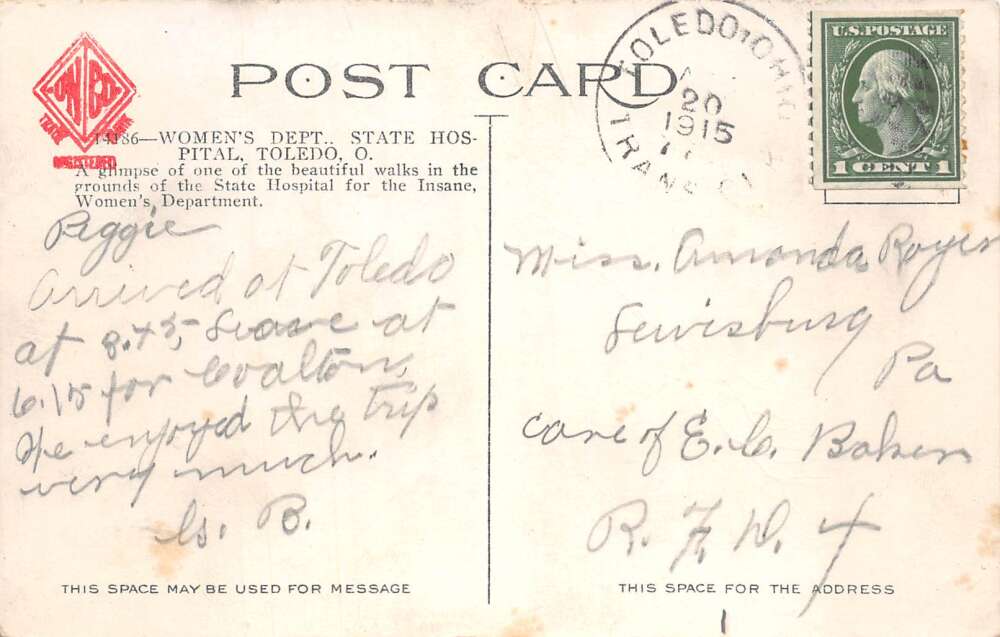 POST CARD
O.N.CO.
TRADE MARK
REGISTERED
14186—WOMEN'S DEPT., STATE HOS-
PITAL, TOLEDO, O.
A glimpse of one of the beautiful walks in the
grounds of the State Hospital for the Insane,
Women's Department.
Peggie
Arrived at Toledo
at 8.45, Leave at
6.15 for Coalton,
We enjoyed the trip
very much.
B.
THIS SPACE MAY BE USED FOR MESSAGE
TOLEDO, OHIO
20
1915
TRANS
U.S. POSTAGE
1 CENT 1
Miss. Amanda Royer
Lewisburg
Pa
Care of E. C. Baker
R. F. D. 4
THIS SPACE FOR THE ADDRESS
1